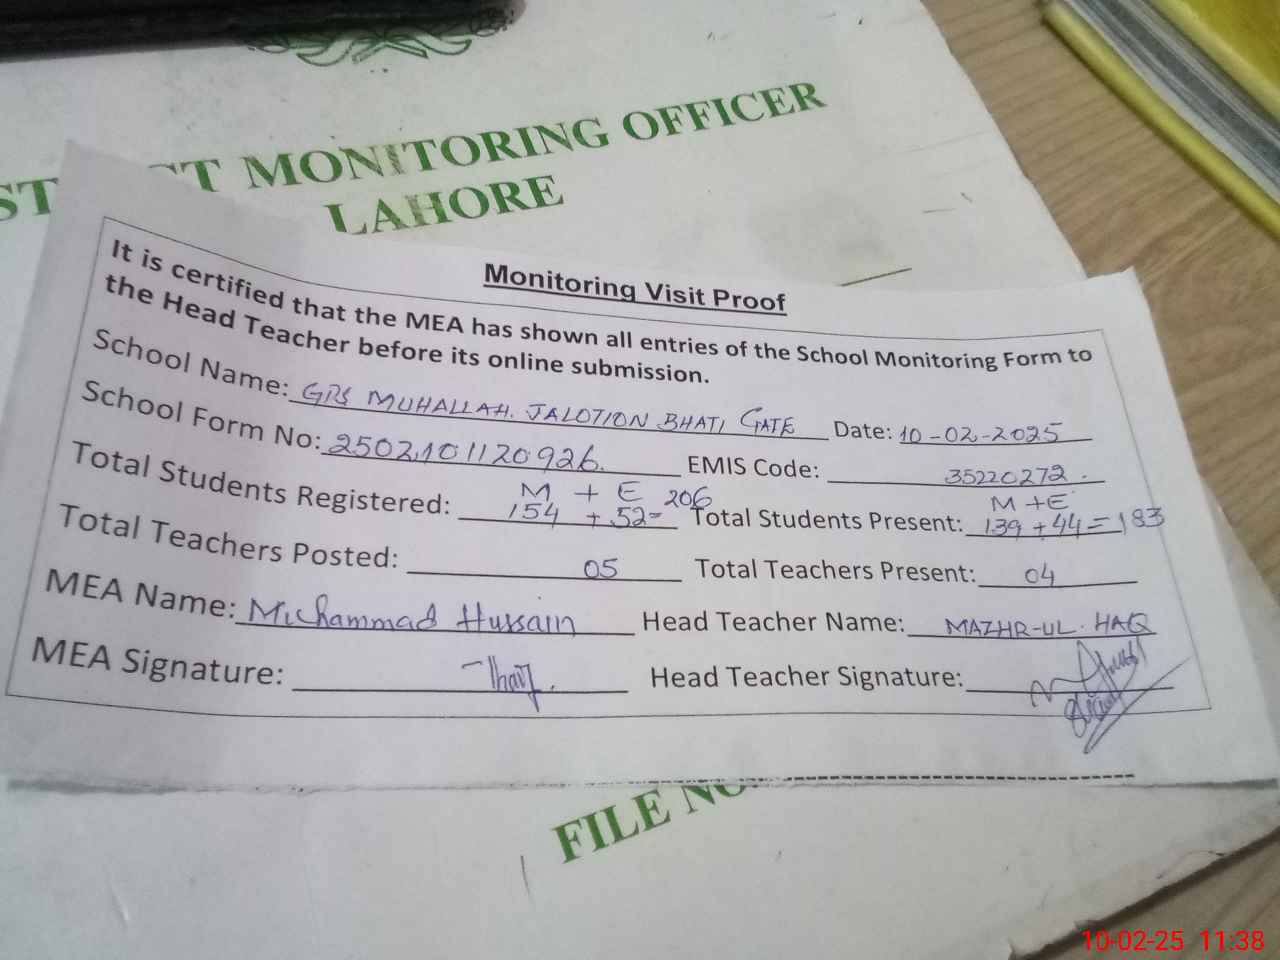 ST CT MONITORING OFFICER
LAHORE
Monitoring Visit Proof
It is certified that the MEA has shown all entries of the School Monitoring Form to
the Head Teacher before its online submission.
School Name: GPS MUHALLAH. JALOTION BHATI GATE Date: 10-02-2025
School Form No: 2502101120926. EMIS Code: 35220272.
Total Students Registered: M + E 154 + 52 = 206 Total Students Present: M + E 139 + 44 = 183
Total Teachers Posted: 05 Total Teachers Present: 04
MEA Name: Muhammad Hussain Head Teacher Name: MAZHR-UL. HAQ
MEA Signature: Head Teacher Signature:
FILE NO.
10-02-25 11:38